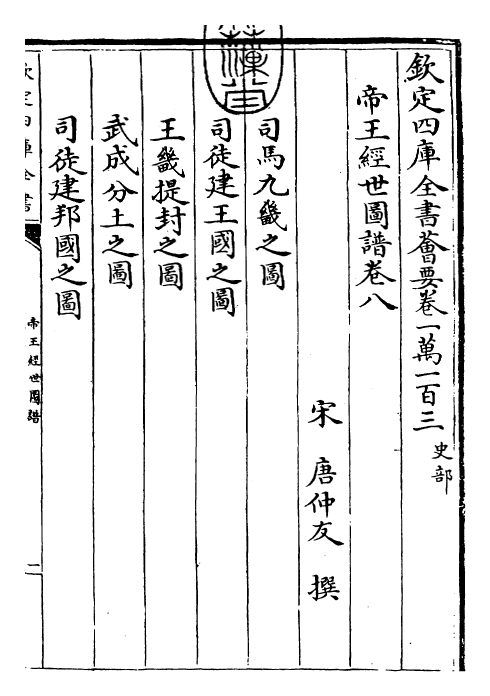 欽定四庫全書薈要卷一萬一百三 史部
帝王經世圖譜卷八
宋 唐仲友 撰
司馬九畿之圖
司徒建王國之圖
王畿提封之圖
武成分土之圖
司徒建邦國之圖
欽定四庫全書
帝王經世圖譜